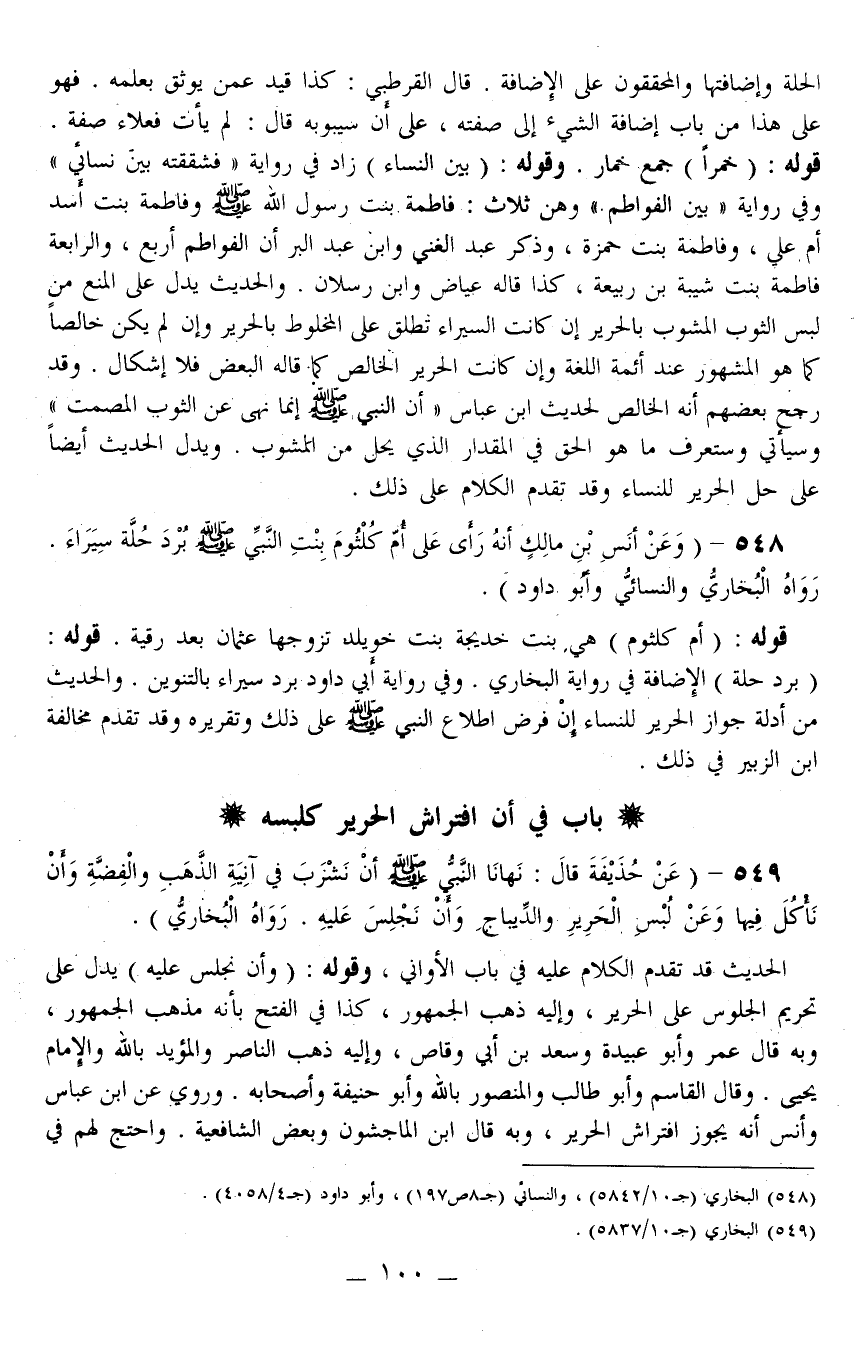 الحلة وإضافتها والمحققون على الإضافة . قال القرطبي : كذا قيد عمن يوثق بعلمه . فهو
على هذا من باب إضافة الشيء إلى صفته ، على أن سيبويه قال : لم يأت فعلاء صفة .
قوله : ( خمراً ) جمع خمار . وقوله : ( بين النساء ) زاد في رواية « فشققته بين نسائي »
وفي رواية « بين الفواطم » وهن ثلاث : فاطمة بنت رسول الله ﷺ وفاطمة بنت أسد
أم علي ، وفاطمة بنت حمزة ، وذكر عبد الغني وابن عبد البر أن الفواطم أربع ، والرابعة
فاطمة بنت شيبة بن ربيعة ، كذا قاله عياض وابن رسلان . والحديث يدل على المنع من
لبس الثوب المشوب بالحرير إن كانت السيراء تُطلق على المخلوط بالحرير وإن لم يكن خالصاً
كما هو المشهور عند أئمة اللغة وإن كانت الحرير الخالص كما قاله البعض فلا إشكال . وقد
رجح بعضهم أنه الخالص لحديث ابن عباس « أن النبي ﷺ إنما نهى عن الثوب المصمت »
وسيأتي وستعرف ما هو الحق في المقدار الذي يحل من المشوب . ويدل الحديث أيضاً
على حل الحرير للنساء وقد تقدم الكلام على ذلك .
٥٤٨ – ( وَعَنْ أنَسِ بْنِ مالِكٍ أنهُ رَأى عَلى أُمِّ كُلْثُومَ بِنْتِ النَّبيِّ ﷺ بُرْدَ حُلَّة سِيَرَاءَ .
رَوَاهُ الْبُخاريُّ والنسائيُّ وأبُو داود ) .
قوله : ( أم كلثوم ) هي بنت خديجة بنت خويلد تزوجها عثمان بعد رقية . قوله :
( برد حلة ) الإضافة في رواية البخاري . وفي رواية أبي داود برد سيراء بالتنوين . والحديث
من أدلة جواز الحرير للنساء إنْ فرض اطلاع النبي ﷺ على ذلك وتقريره وقد تقدم مخالفة
ابن الزبير في ذلك .
باب في أن افتراش الحرير كلبسه
٥٤٩ – ( عَنْ حُذَيْفَةَ قالَ : نَهانَا النَّبيُّ ﷺ أنْ نَشْرَبَ في آنِيَةِ الذَّهَبِ والْفِضَّةِ وَأَنْ
نَأْكُلَ فِيها وَعَنْ لُبْسِ الْحَرِيرِ والدِّيباجِ وَأَنْ نَجْلِسَ عَليهِ . رَوَاهُ الْبُخاريُّ ) .
الحديث قد تقدم الكلام عليه في باب الأواني ، وقوله : ( وأن نجلس عليه ) يدل على
تحريم الجلوس على الحرير ، وإليه ذهب الجمهور ، كذا في الفتح بأنه مذهب الجمهور ،
وبه قال عمر وأبو عبيدة وسعد بن أبي وقاص ، وإليه ذهب الناصر والمؤيد بالله والإمام
يحيى . وقال القاسم وأبو طالب والمنصور بالله وأبو حنيفة وأصحابه . وروي عن ابن عباس
وأنس أنه يجوز افتراش الحرير ، وبه قال ابن الماجشون وبعض الشافعية . واحتج لهم في
(٥٤٨) البخاري (جـ٥٨٤٢/١٠) ، والنسائي (جـ٨ص١٩٧) ، وأبو داود (جـ٤٠٥٨/٤) .
(٥٤٩) البخاري (جـ٥٨٣٧/١٠) .
— ١٠٠ —